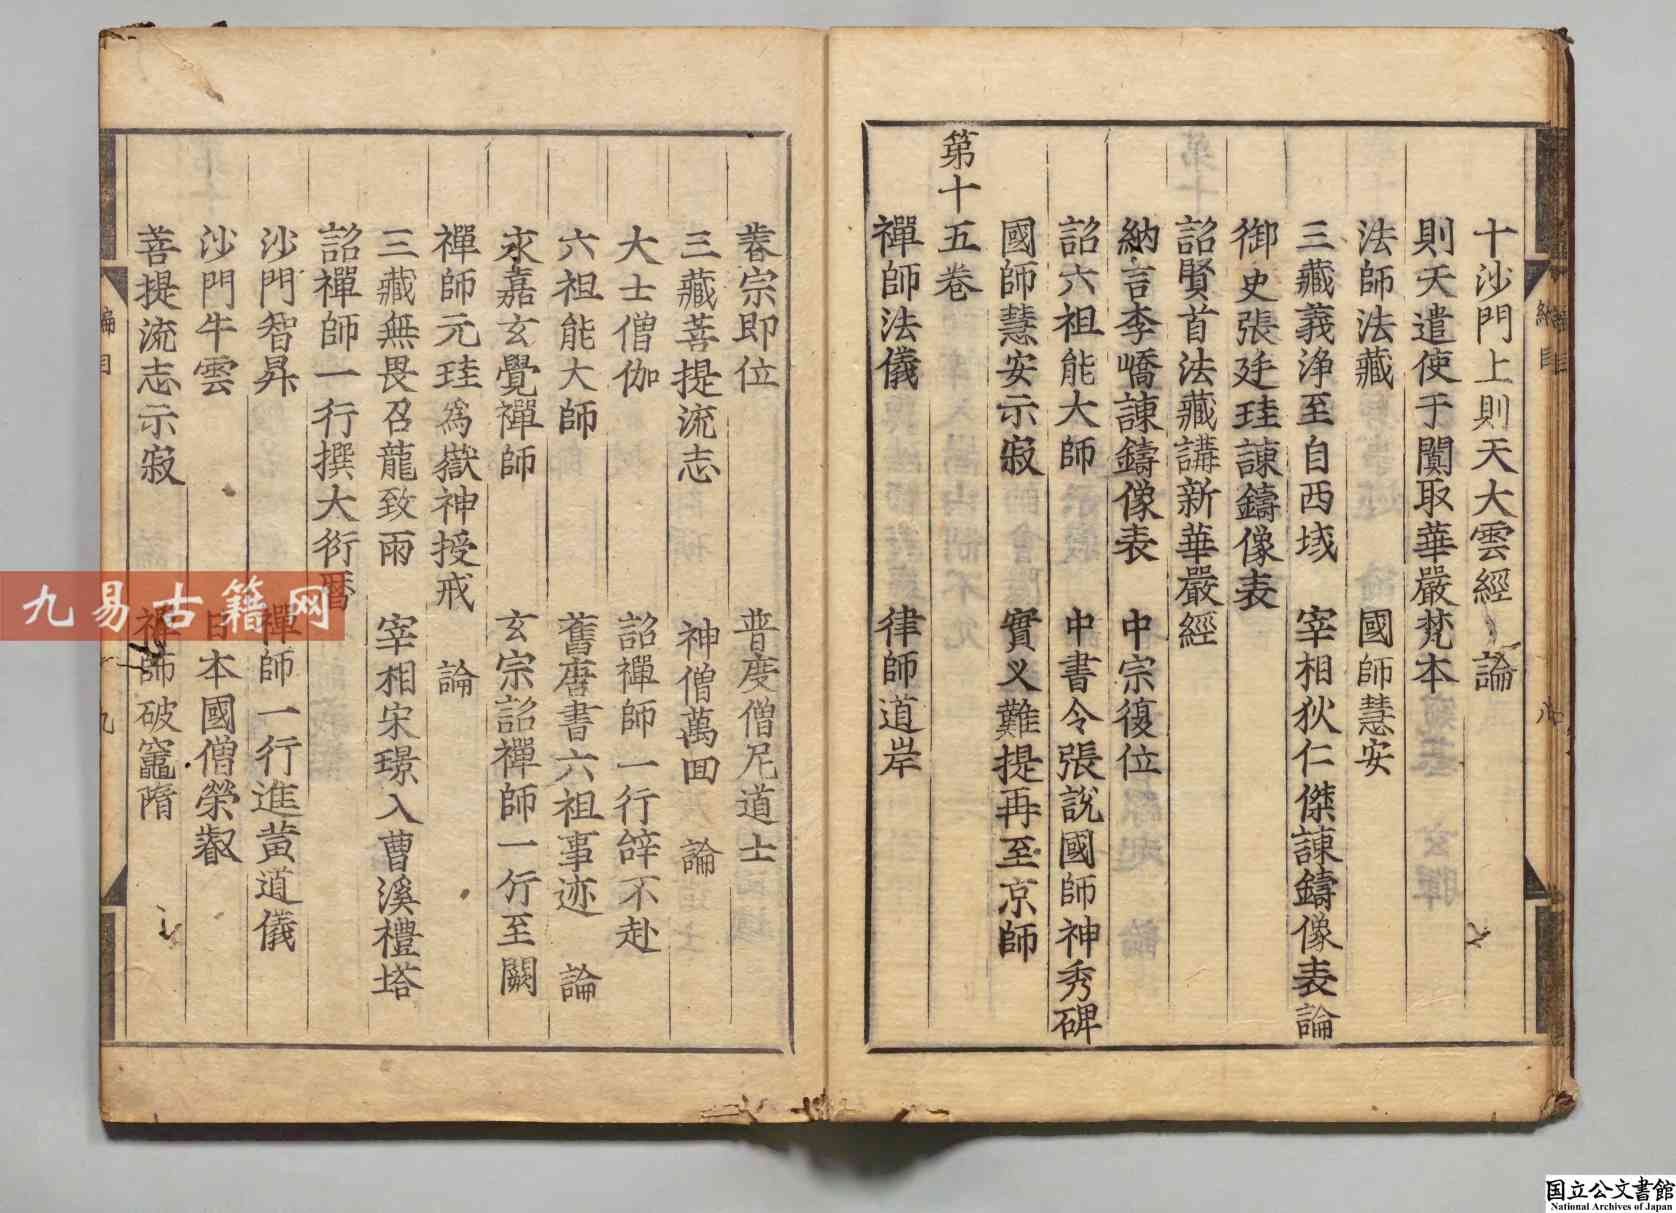 十沙門上則天大雲經 論
則天遣使于闐取華嚴梵本
法師法藏 國師慧安
三藏義淨至自西域 宰相狄仁傑諫鑄像表論
御史張廷珪諫鑄像表
詔賢首法藏講新華嚴經
納言李嶠諫鑄像表 中宗復位
詔六祖能大師 中書令張說國師神秀碑
國師慧安示寂 實义難提再至京師
第十五卷
禪師法儀 律師道岸
睿宗即位 普度僧尼道士
三藏菩提流志 神僧萬回 論
大士僧伽 詔禪師一行辞不赴
六祖能大師 舊唐書六祖事迹 論
永嘉玄覺禪師 玄宗詔禪師一行至闕
禪師元珪爲嶽神授戒 論
三藏無畏召龍致雨 宰相宋璟入曹溪禮塔
詔禪師一行撰大衍曆
沙門智昇 禪師一行進黃道儀
沙門牛雲 日本國僧榮叡
菩提流志示寂 禪師破竈墮
編目
九
八
九易古籍网
国立公文書館
National Archives of Japan